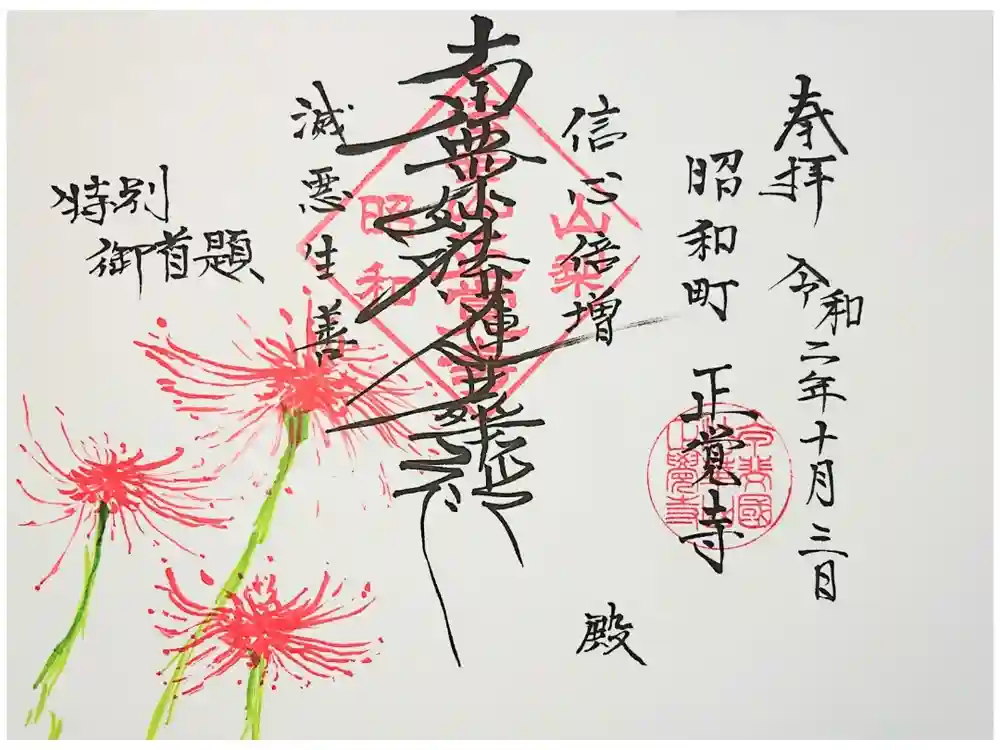 奉拝 令和二年十月三日
昭和町 正覚寺
殿
信心倍増
南無妙法蓮華経
滅悪生善
特別
御首題
昭和